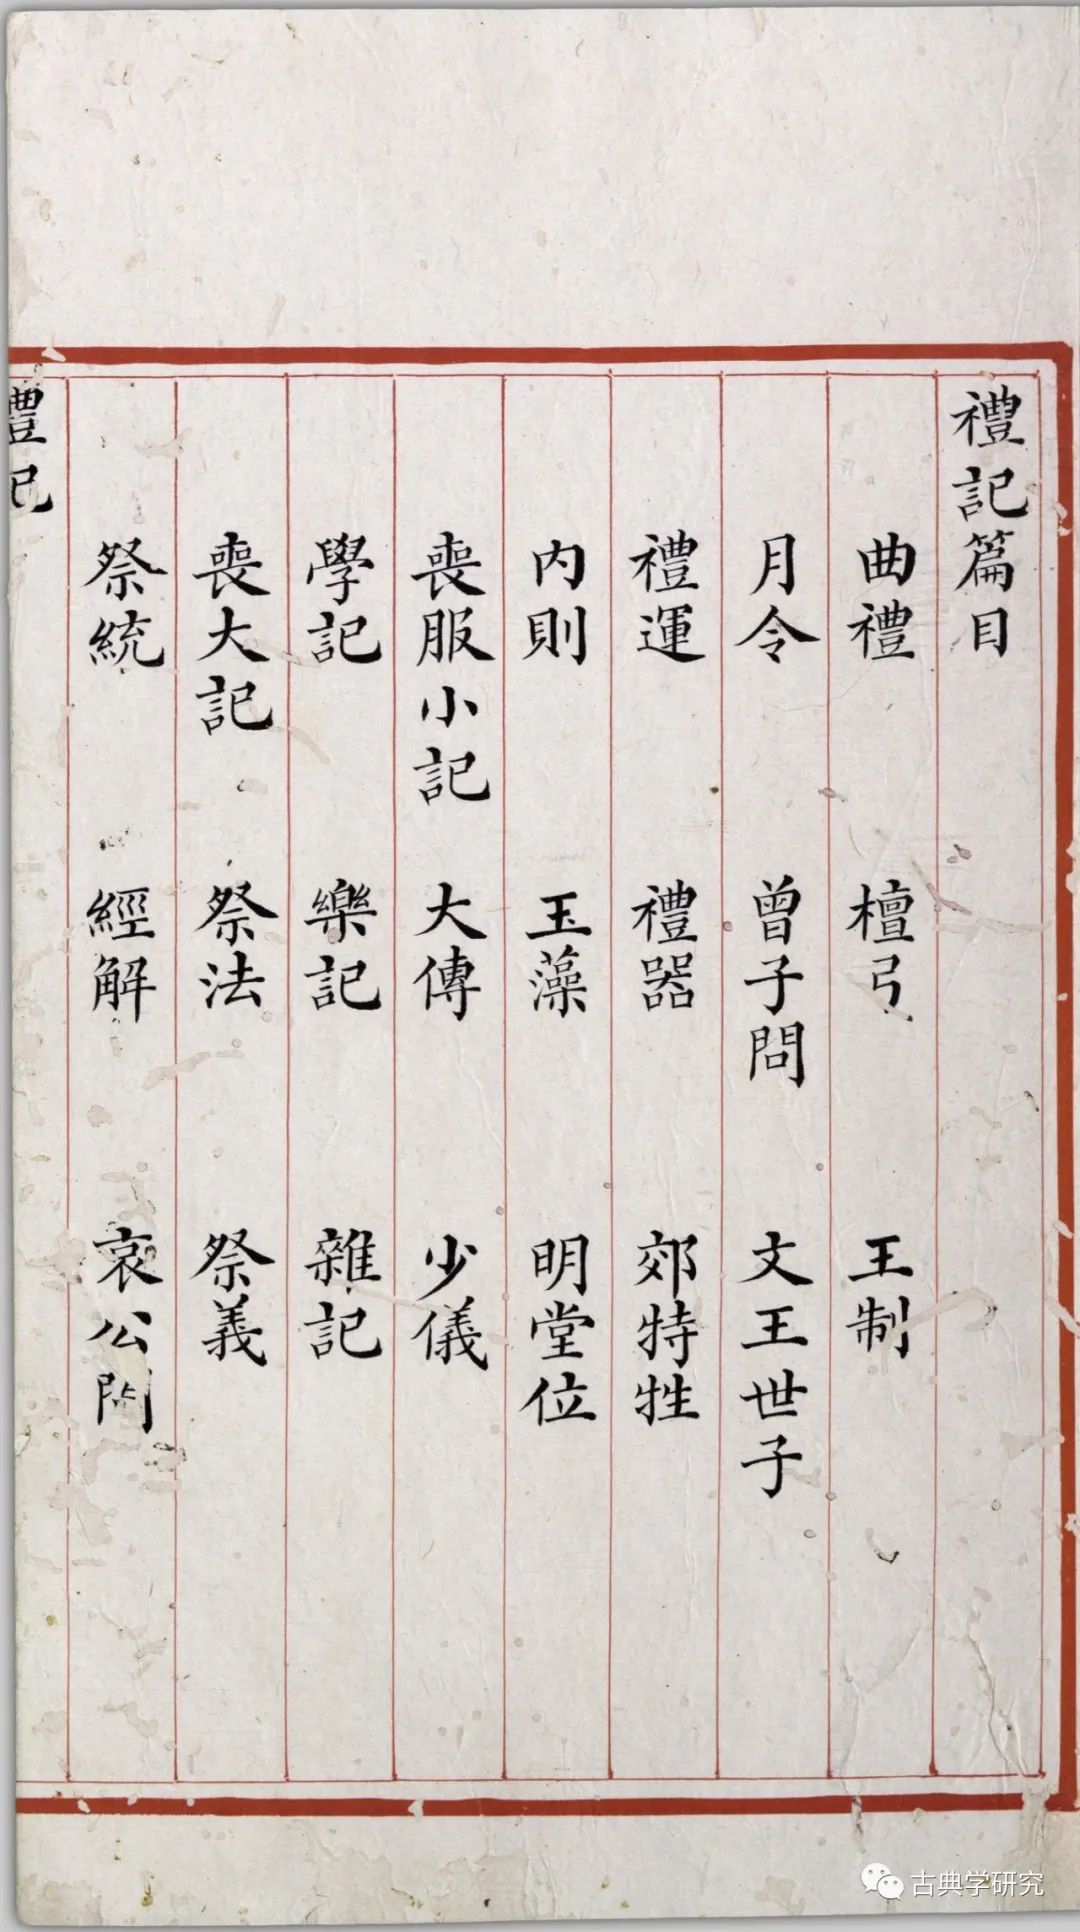 禮記篇目
曲禮 檀弓 王制
月令 曾子問 文王世子
禮運 禮器 郊特牲
内則 玉藻 明堂位
喪服小記 大傳 少儀
學記 樂記 雜記
喪大記 祭法 祭義
祭統 經解 哀公問
禮記
古典学研究